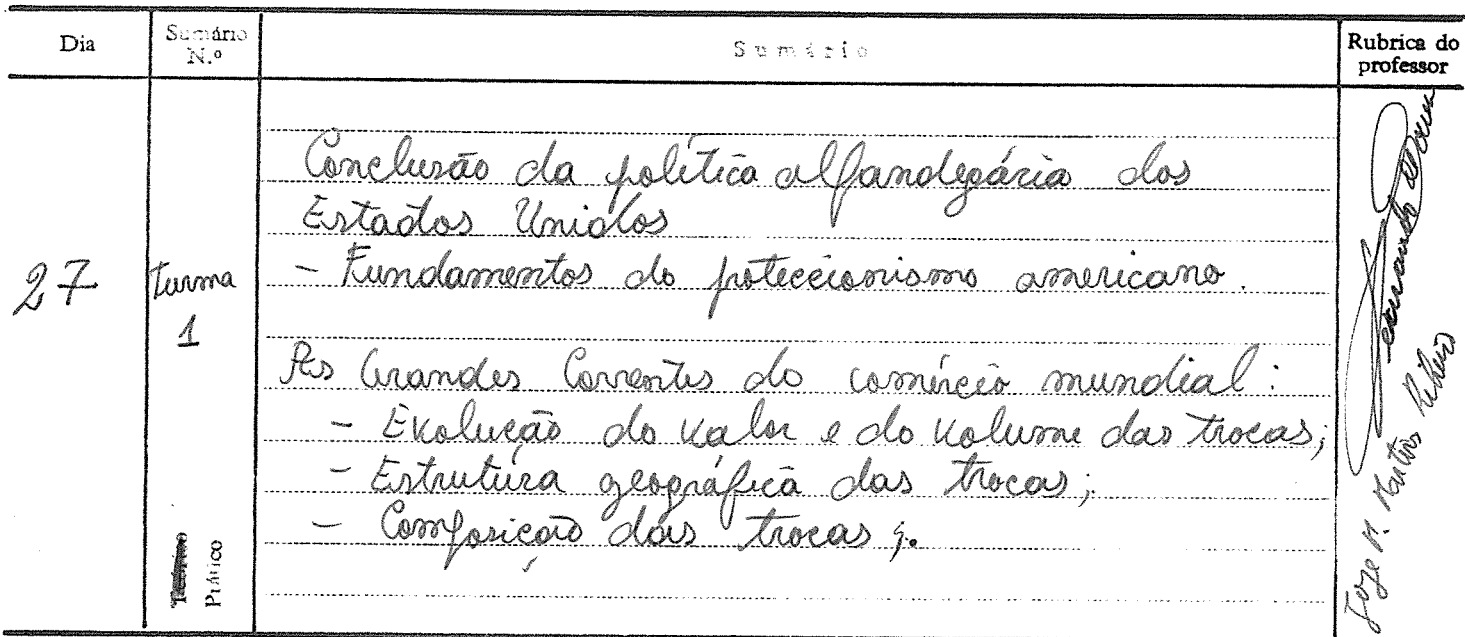 Dia
Sumário
N.º
Sumário
Rubrica do
professor
27
Turma
1
Prático
Conclusão da política alfandegária dos
Estados Unidos
- Fundamentos do proteccionismo americano.
As Grandes Correntes do comércio mundial:
- Evolução do valor e do volume das trocas;
- Estrutura geográfica das trocas;
- Composição das trocas;.
Fernando
José M. Martins Ribeiro